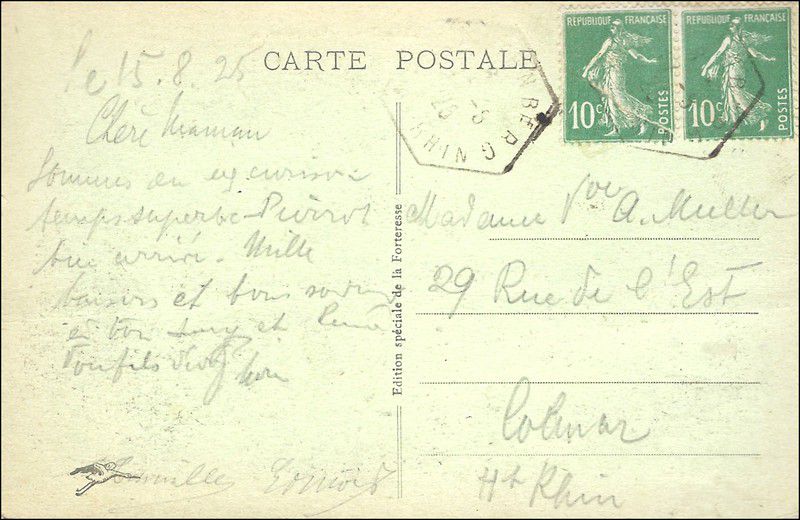 CARTE POSTALE
REPUBLIQUE FRANÇAISE
10c
POSTES
REPUBLIQUE FRANÇAISE
10c
POSTES
NBERG
RHIN
le 15.8.25
Chère Maman
Sommes en excursion
temps superbe Pierrot
bien arrivé. Mille
baisers et bons
et bon et René
Ton fils
Famille
Edition spéciale de la Forteresse
Madame Vve A. Muller
29 Rue de l'Est
Colmar
Ht Rhin